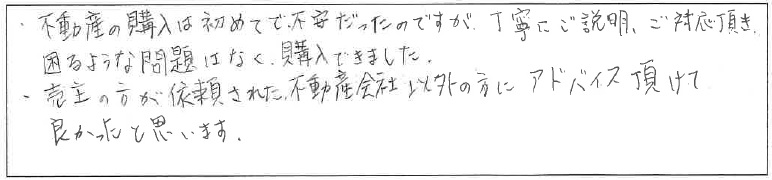 ・不動産の購入は初めてで、不安だったのですが、丁寧にご説明、ご対応頂き、
困るような問題はなく、購入できました。
・売主の方が依頼された、不動産会社以外の方に アドバイス頂けて
良かったと思います。